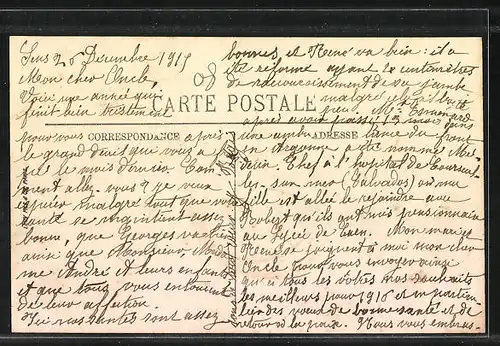 Sens 26 Decembre 1915
Mon cher Oncle,
Voici une année qui
finit bien tristement
CARTE POSTALE
CORRESPONDANCE
pour vous après
le grand deuil que vous a
le mois dernier. Com
ment allez-vous? je veux
espérer malgré tout que votre
santé se maintient assez
bonne, que Georges va bien
ainsi que Monsieur, Mada
me André et leurs enfants
et que tous vous entourent
de leur affection.
Ici nos santés sont assez
bonnes, et René va bien: il a
été réformé ayant 2 centimètres
de raccourcissement de sa jambe
malgré
après avoir passé 13 mois dans
ADRESSE
une ambulance du front
en Argonne a été nommé Mé
decin Chef à l'hôpital de Courseul
les-sur-mer (Calvados) où ma
fille est allée le rejoindre avec
Robert qu'ils ont mis pensionnaire
au Lycée de Caen. Mon mari et
René se joignent à moi mon cher
Oncle pour vous envoyer ainsi
qu'à tous les vôtres nos souhaits
les meilleurs pour 1916 et en particu
lier des vœux de bonne santé et de
retour de la paix. Nous vous embras-